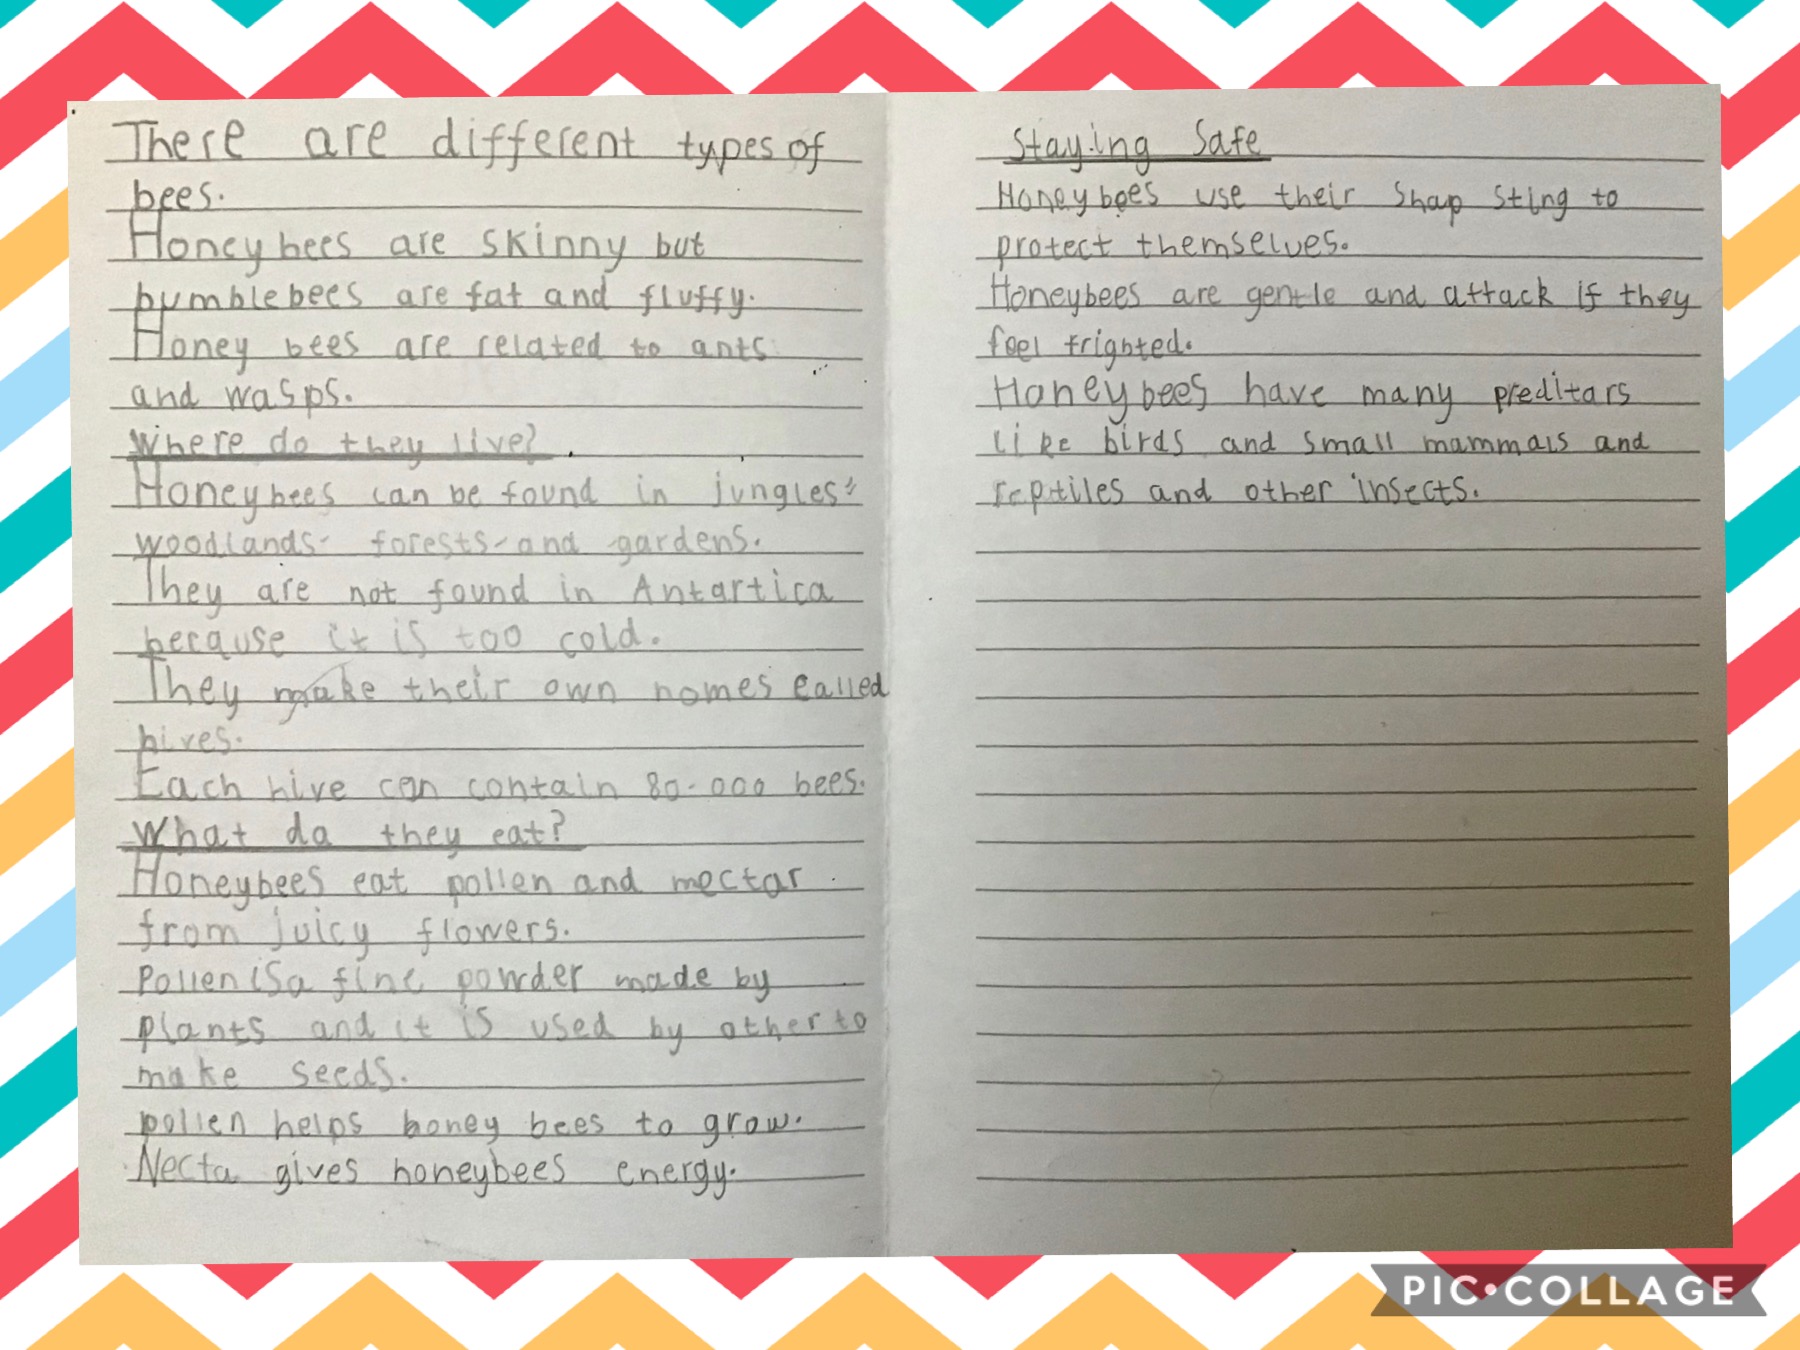 There are different types of
bees.
Honeybees are skinny but
bumblebees are fat and fluffy.
Honey bees are related to ants
and wasps.
Where do they live?
Honeybees can be found in jungles,
woodlands, forests, and gardens.
They are not found in Antartica
because it is too cold.
They make their own homes called
hives.
Each hive can contain 80.000 bees.
What do they eat?
Honeybees eat pollen and mectar
from juicy flowers.
Pollen is a fine powder made by
plants and it is used by other to
make seeds.
pollen helps honey bees to grow.
Necta gives honeybees energy.
Staying Safe
Honeybees use their Shap Sting to
protect themselves.
Honeybees are gentle and attack if they
feel frighted.
Honeybees have many preditars
like birds and small mammals and
reptiles and other insects.
PIC•COLLAGE